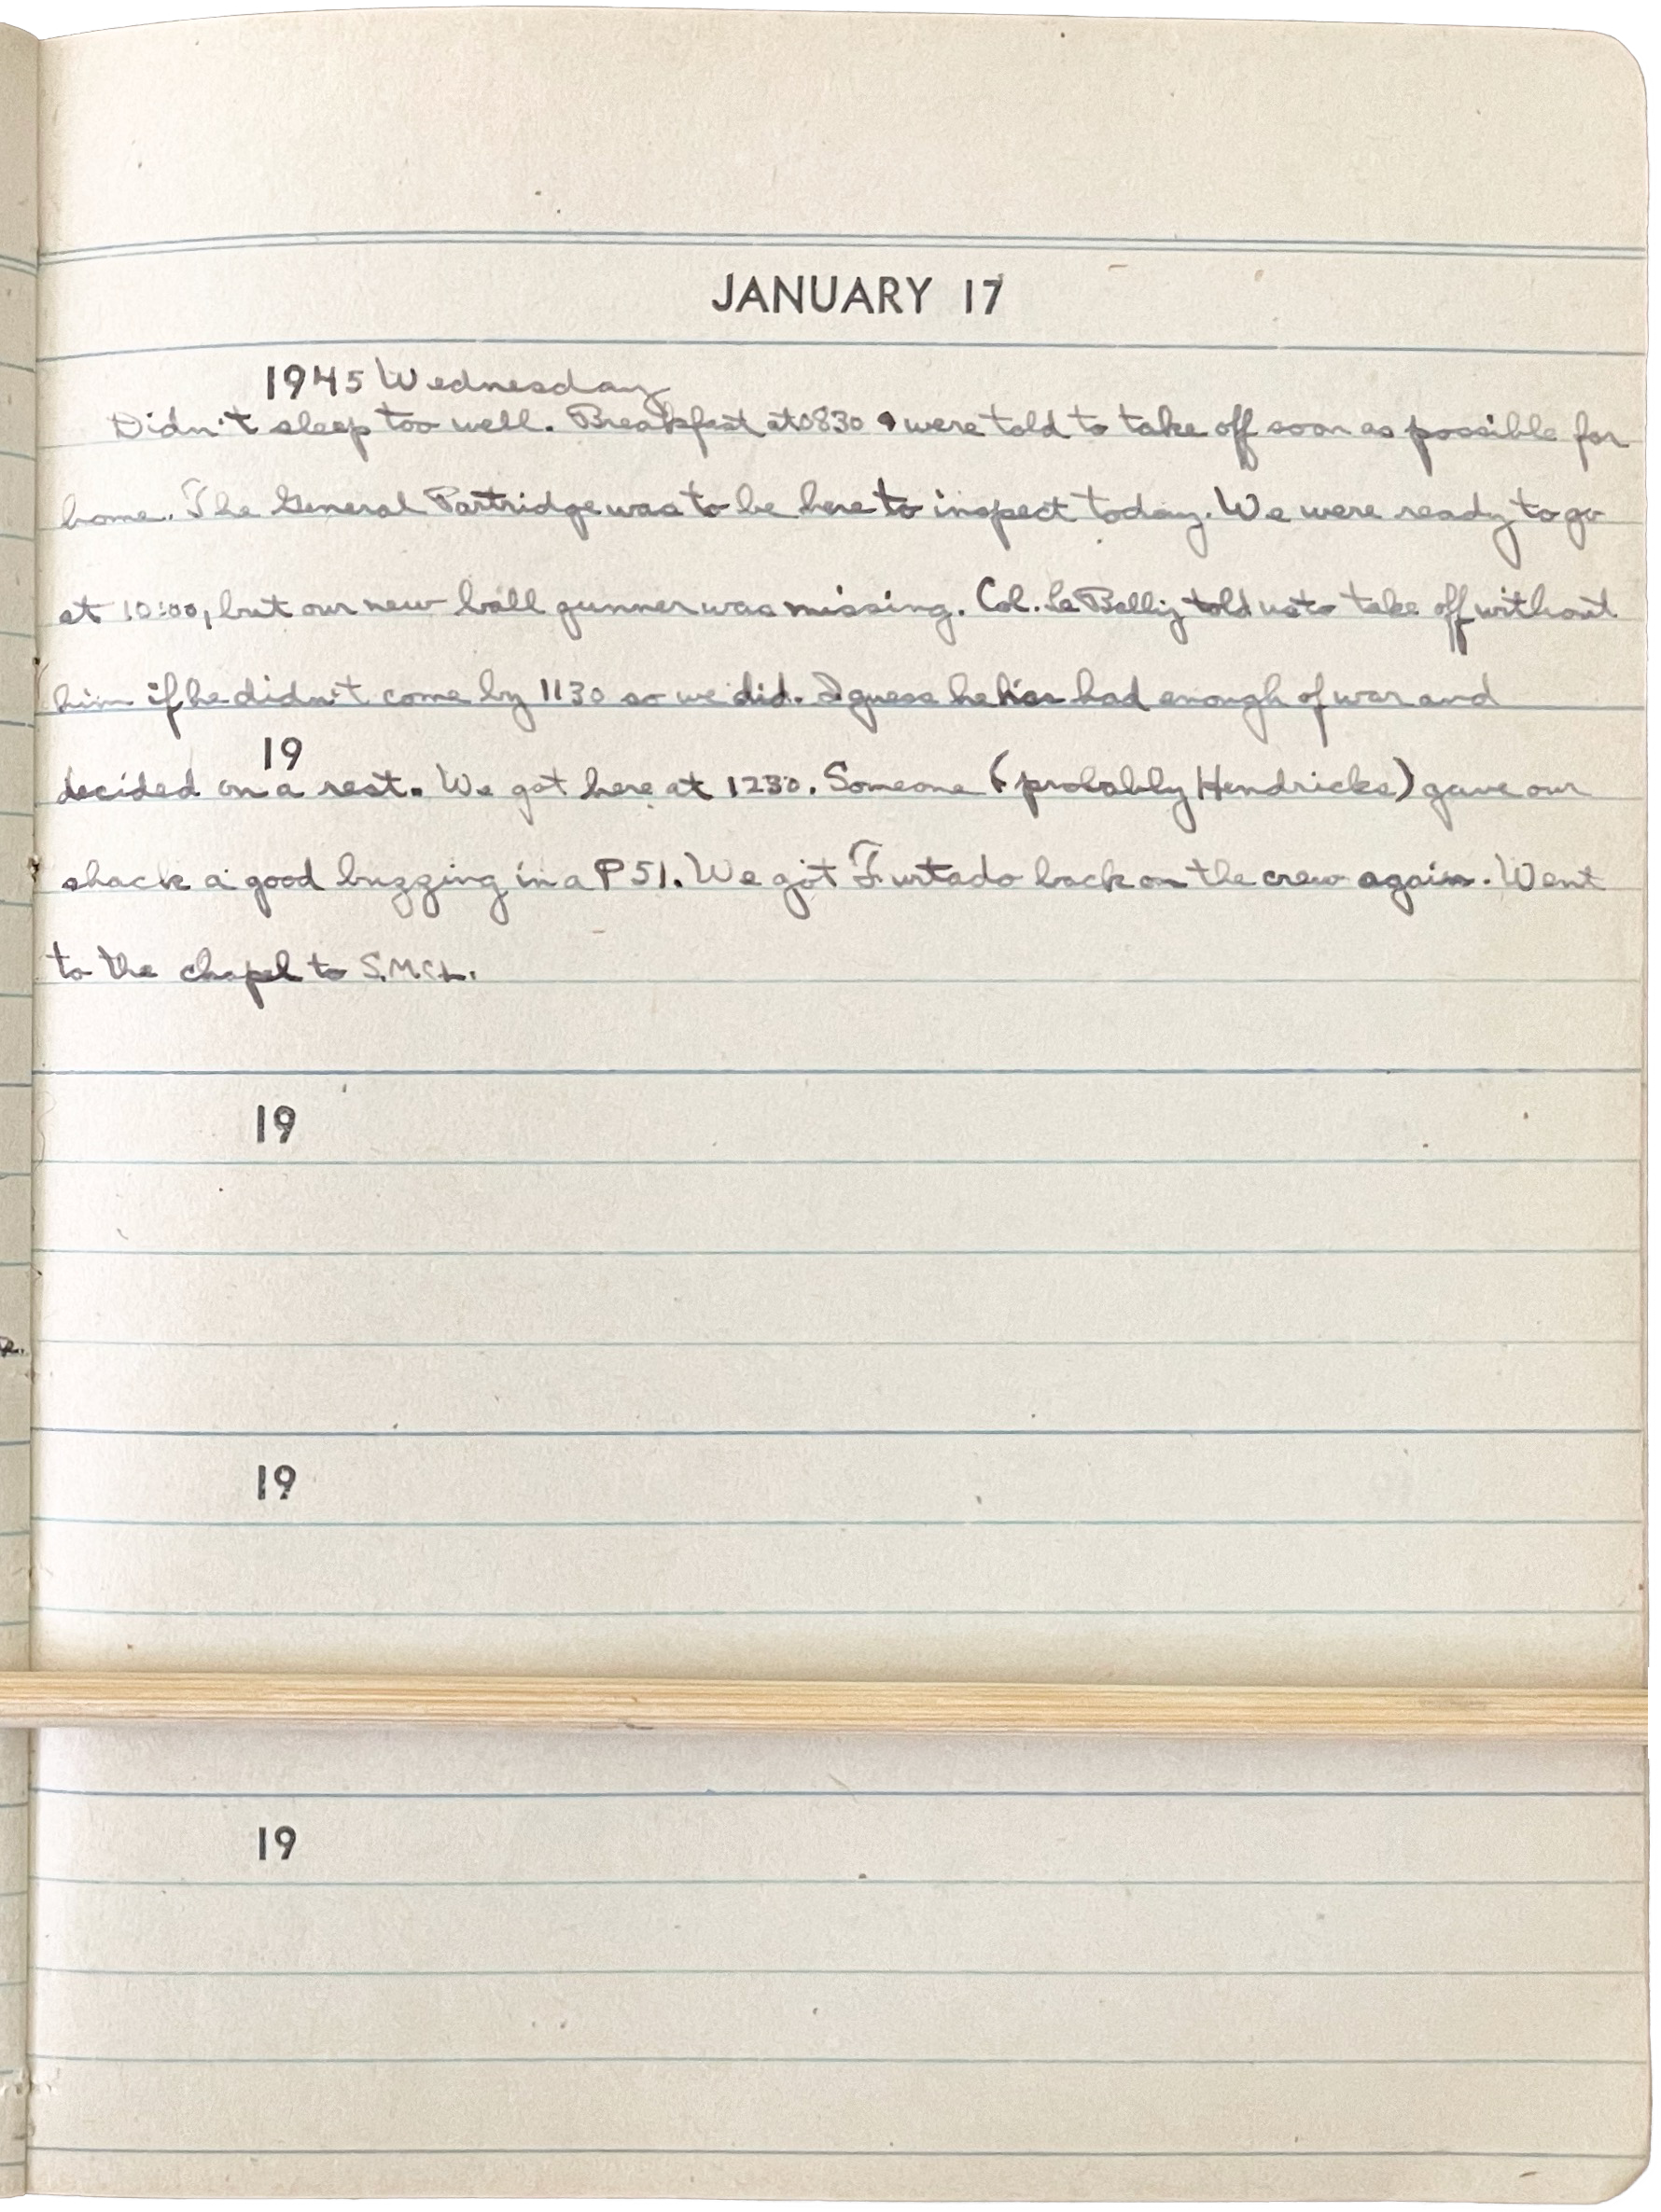 JANUARY 17
1945 Wednesday
Didn't sleep too well. Breakfast at 0830 & were told to take off soon as possible for
home. The General Partridge was to be here to inspect today. We were ready to go
at 10:00, but our new ball gunner was missing. Col. told us to take off without
him if he didn't come by 1130 so we did. I guess he has had enough of war and
19
decided on a rest. We got here at 1230. Someone (probably Hendricks) gave our
shack a good buzzing in a P51. We got Furtado back on the crew again. Went
to the chapel to
19
19
19